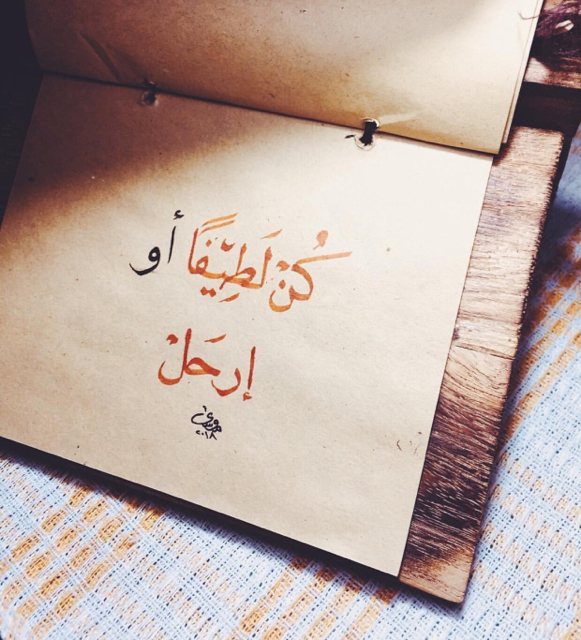 كُنْ لَطِيْفًا أو
إرحَلْ
موسى
٢٠١٨